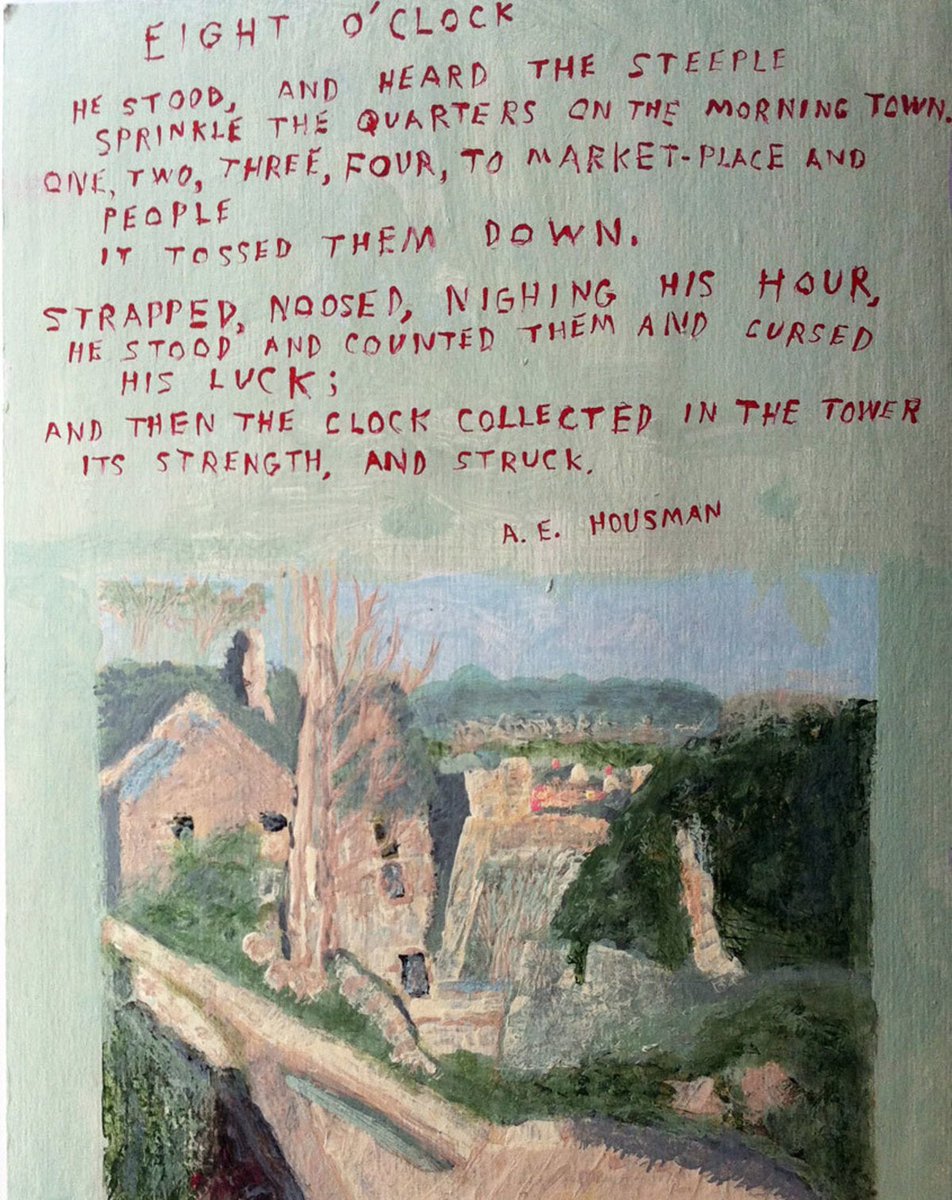 EIGHT O'CLOCK
HE STOOD, AND HEARD THE STEEPLE
SPRINKLE THE QUARTERS ON THE MORNING TOWN.
ONE, TWO, THREE, FOUR, TO MARKET-PLACE AND
PEOPLE
IT TOSSED THEM DOWN.
STRAPPED, NOOSED, NIGHING HIS HOUR,
HE STOOD AND COUNTED THEM AND CURSED
HIS LUCK;
AND THEN THE CLOCK COLLECTED IN THE TOWER
ITS STRENGTH, AND STRUCK.
A. E. HOUSMAN